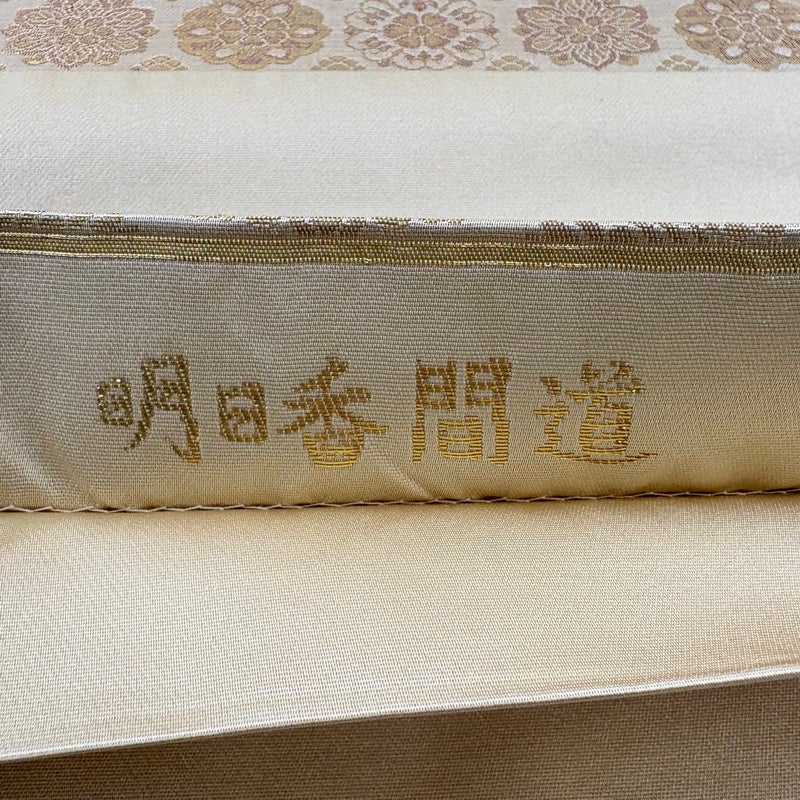 明日香間道